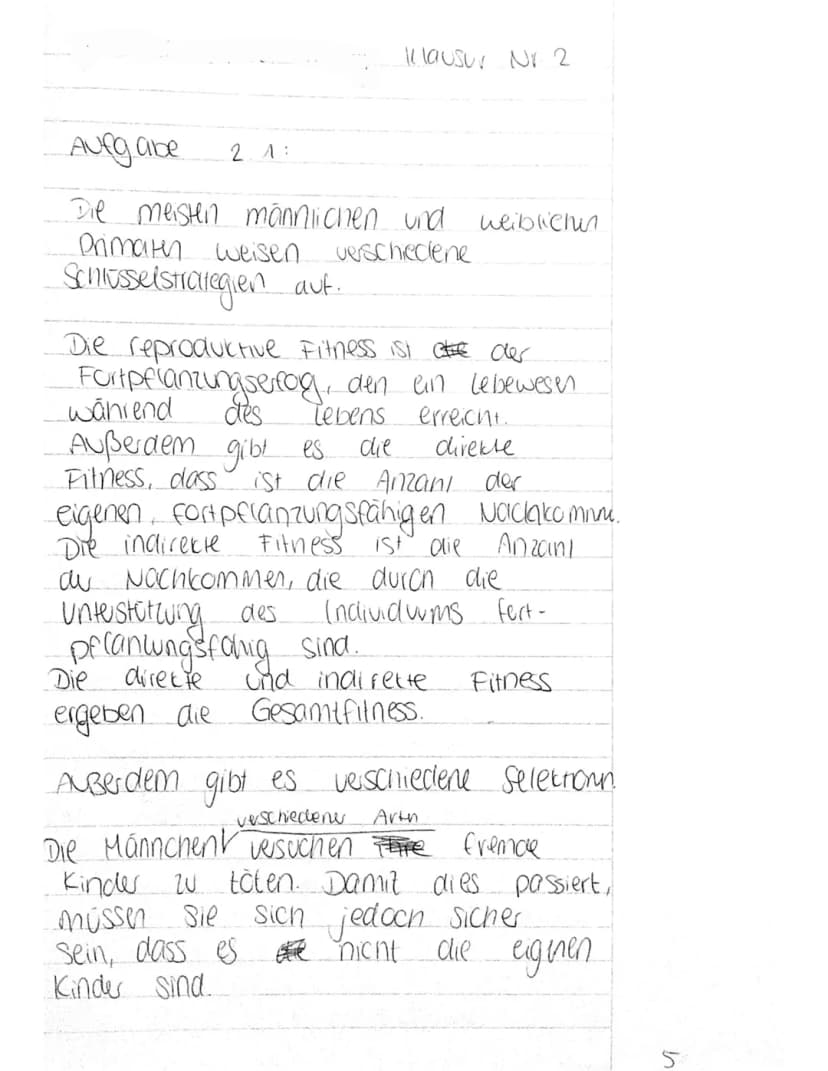 Klausur Nr 2
Aufgabe 2 1:
Die meisten männlichen und weiblichen
Primaten weisen verschiedene
Schlüsselstrategien auf.
Die reproduktive Fitness ist der
Fortpflanzungserfog, den ein Lebewesen
während des Lebens erreicht.
Außerdem gibt es die direkte
Fitness, dass ist die Anzahl der
eigenen, fortpflanzungsfähigen Nachkommen.
Die indirekte Fitness ist die Anzahl
der Nachkommen, die durch die
Unterstützung des Individuums fort-
pflanzungsfähig sind.
Die direkte und indirekte Fitness
ergeben die Gesamtfitness.
Außerdem gibt es verschiedene Selektionen.
verschiedener Arten
Die Männchen versuchen fremde
Kinder zu töten. Damit dies passiert,
müssen sie sich jedoch sicher
sein, dass es nicht die eignen
Kinder sind.
5